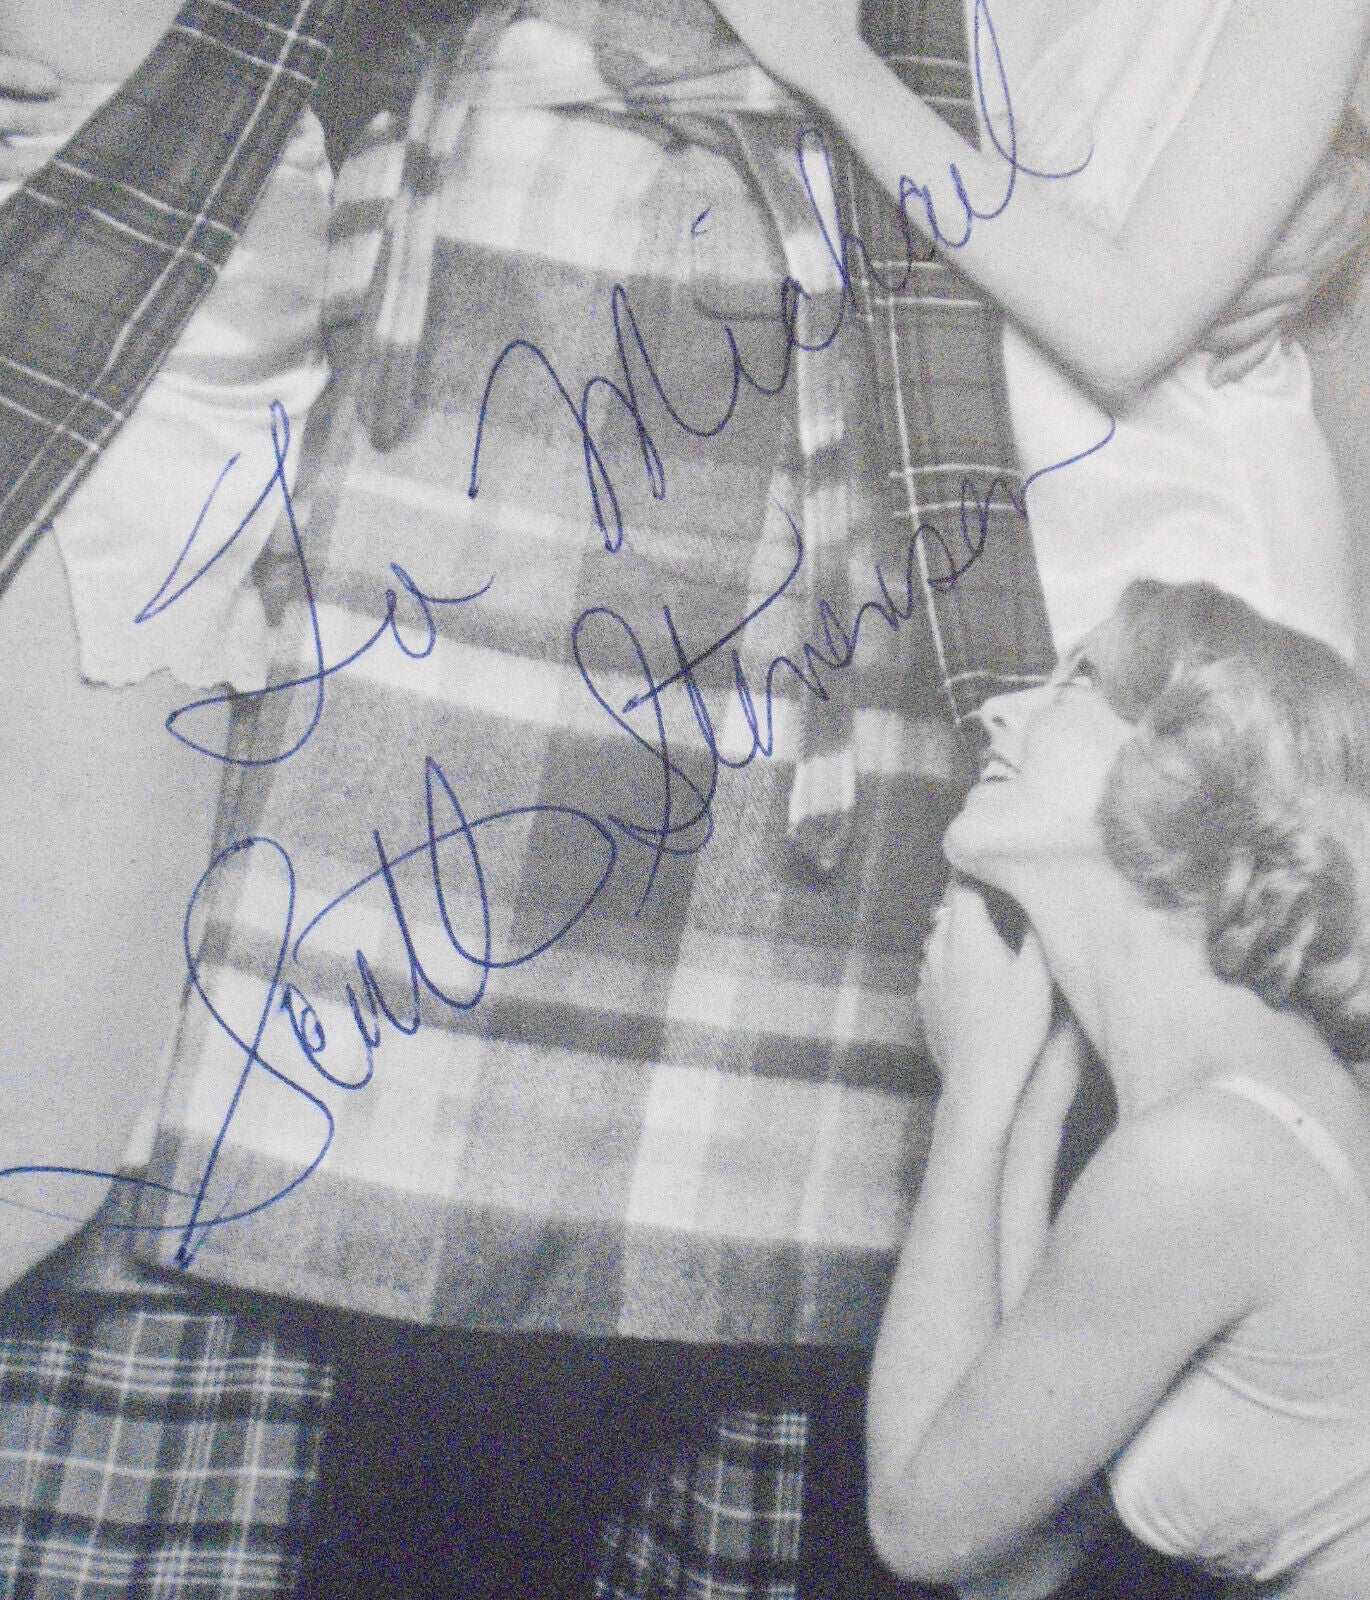 To Michael
Scott Stevensen